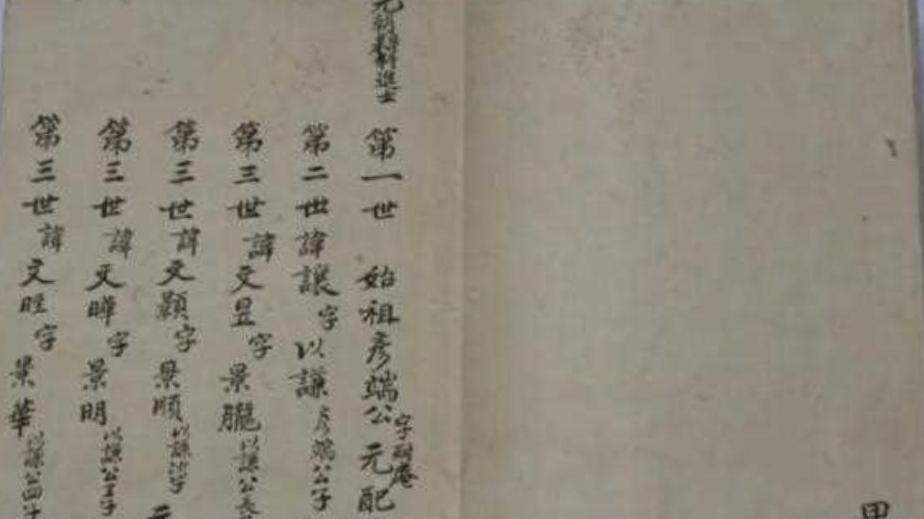 元朝辛未科進士
第一世 始祖彥端公字耐庵元配
第二世諱讓字以謙彥端公子
第三世諱文昱字景朧以謙公長
第三世諱文顥字景順以謙次子
第三世諱文曄字景明以謙公三子
第三世諱文字景華以謙公四子